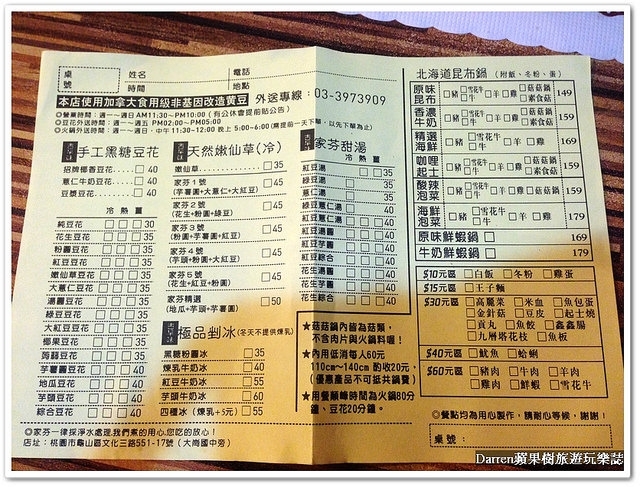 桌號
姓名 電話
時間 地點
本店使用加拿大食用級非基因改造黃豆 外送專線:03-3973909
◎營業時間:週一~週日AM11:30~PM10:00(有公休會提前貼公告)
◎豆花外送時間:週一~週五 PM02:00~PM05:00
◎火鍋外送時間:週一~週日,中午11:30~12:00 晚上 5:00~6:00(需提前一天下單,以先下單為止)
手工黑糖豆花
招牌椰香豆花.....□40
薏仁牛奶豆花.....□40
豆漿豆花.....□40
冷 熱 薑
純豆花 □□□30
花生豆花 □□□35
粉圓豆花 □□□35
紅豆豆花 □□□35
嫩仙草豆花 □□□35
大薏仁豆花 □□□35
湯圓豆花 □□□35
綠豆豆花 □□□35
大紅豆豆花 □□□35
椰果豆花 □□□35
蒟蒻豆花 □□□35
芋薯圓豆花 □□□40
地瓜豆花 □□□40
芋頭豆花 □□□40
綜合豆花 □□□40
天然嫩仙草(冷)
嫩仙草.....□35
家芬1號 □45
(芋薯圓+大薏仁+大紅豆)
家芬2號 □45
(花生+粉圓+綠豆)
家芬3號 □45
(粉圓+芋薯圓+大紅豆)
家芬4號 □45
(芋頭+粉圓+大紅豆)
家芬5號 □45
(花生+紅豆+粉圓)
家芬精選 □50
(地瓜+芋頭+芋薯圓)
極品剉冰(冬天不提供煉乳)
黑糖粉圓冰 □35
煉乳牛奶冰 □40
紅豆牛奶冰 □55
芋頭牛奶冰 □60
四種冰(煉乳+5元) □55
家芬甜湯
冷 熱 薑
紅豆湯
綠豆湯
紅豆湯圓
紅豆芋圓
花生湯圓
花生芋圓
花生綜合
★菇菇鍋內皆為菇類,
不含肉片與火鍋料喔!
★內用低消每人60元
110cm~140cm 酌收20元,
(優惠產品不可抵共鍋費)
★用餐顛峰時間為火鍋80分
鐘、豆花20分鐘。
北海道昆布鍋 (附飯、冬粉、蛋)
原味昆布 □豬 □雪花牛 □羊 □雞 □菇菇鍋 □素食鍋 149
香濃牛奶 □豬 □雪花牛 □羊 □雞 □菇菇鍋 □素食鍋 159
精選海鮮 □豬 □雪花牛 □羊 □雞 169
咖哩起士 □豬 □雪花牛 □羊 □雞 □菇菇鍋 159
酸辣泡菜 □豬 □雪花牛 □羊 □雞 □菇菇鍋 159
海鮮泡菜 □豬 □雪花牛 □羊 □雞 179
原味鮮蝦鍋 □ 169
牛奶鮮蝦鍋 □ 179
$10元區 □白飯 □冬粉 □雞蛋
$15元區 □王子麵
$30元區 □高麗菜 □米血 □魚包蛋
□金針菇 □豆皮 □起士燒
□貢丸 □魚餃 □鑫鑫腸
□九層塔花枝 □魚板
$40元區 □魷魚 □蛤蜊
$60元區 □豬肉 □牛肉 □羊肉
□雞肉 □鮮蝦 □雪花牛
◎餐點均為用心製作,請耐心等候,謝謝!
桌號:
◎家芬一律採淨水處理,我們煮的用心,您吃的放心!
店址:桃園市龜山區文化三路551-17號(大崗國中旁)
Darren蘋果樹旅遊玩樂誌